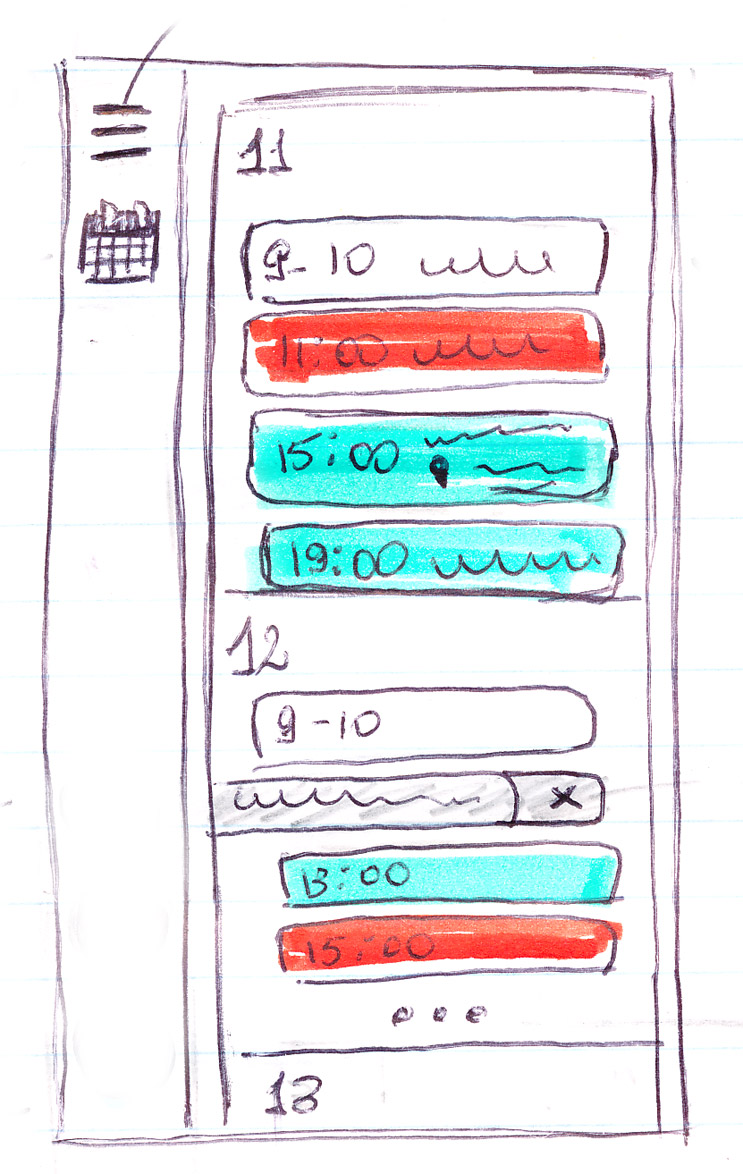 11
9-10
11:00
15:00
19:00
12
9-10
x
13:00
15:00
13